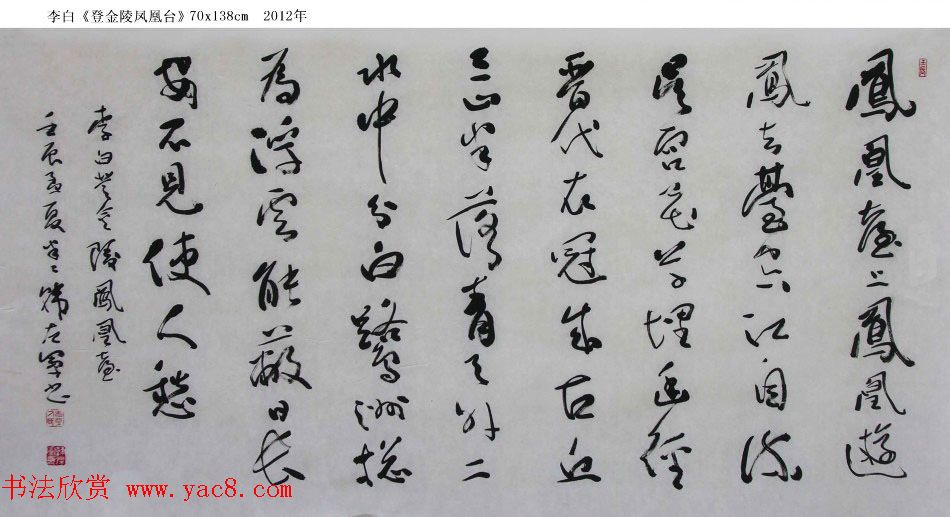 李白《登金陵凤凰台》70x138cm 2012年
鳳凰臺上鳳凰遊
鳳去臺空江自流
吳宮花草埋幽徑
晉代衣冠成古丘
三山半落青天外二
水中分白鷺洲總
為浮雲能蔽日長
安不見使人愁
李白登金陵鳳凰臺
壬辰孟夏左軍書
书法欣赏 www.yac8.com